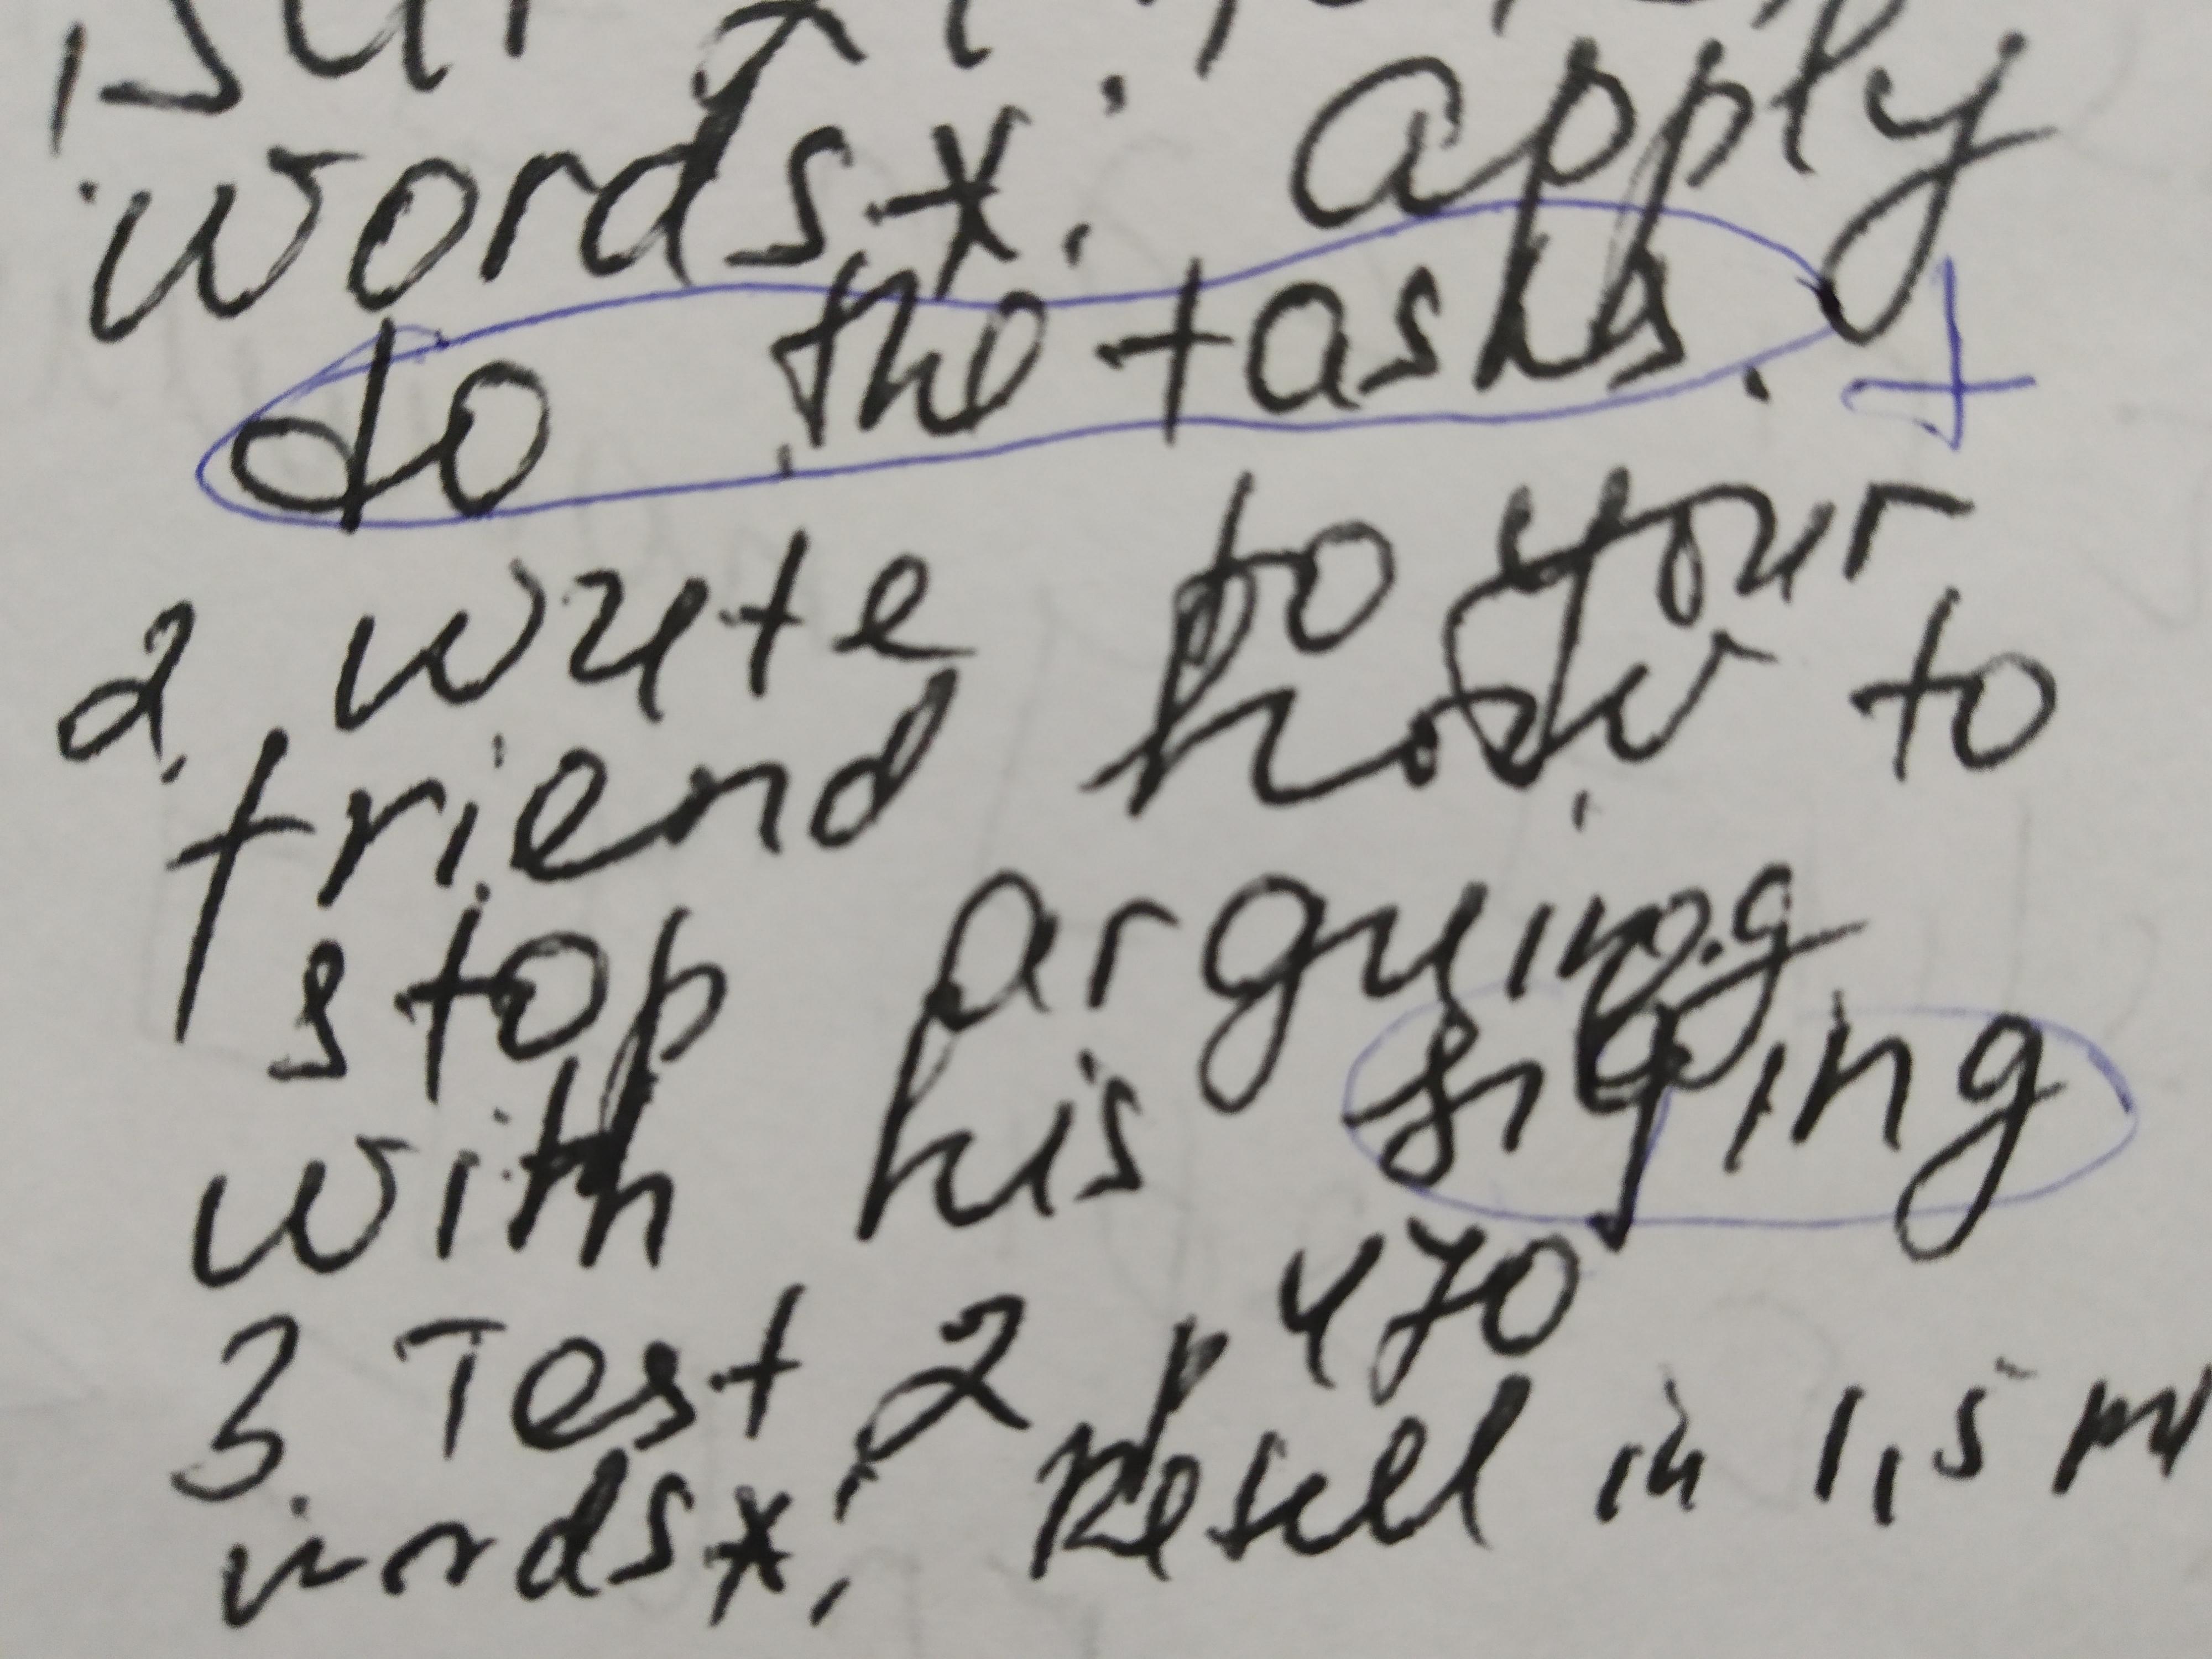 words*: apply
do the tasks. +
2. write to your
friend how to
stop arguing
with his
3. Test 2 p 470
words*; Retell in 1,5 m